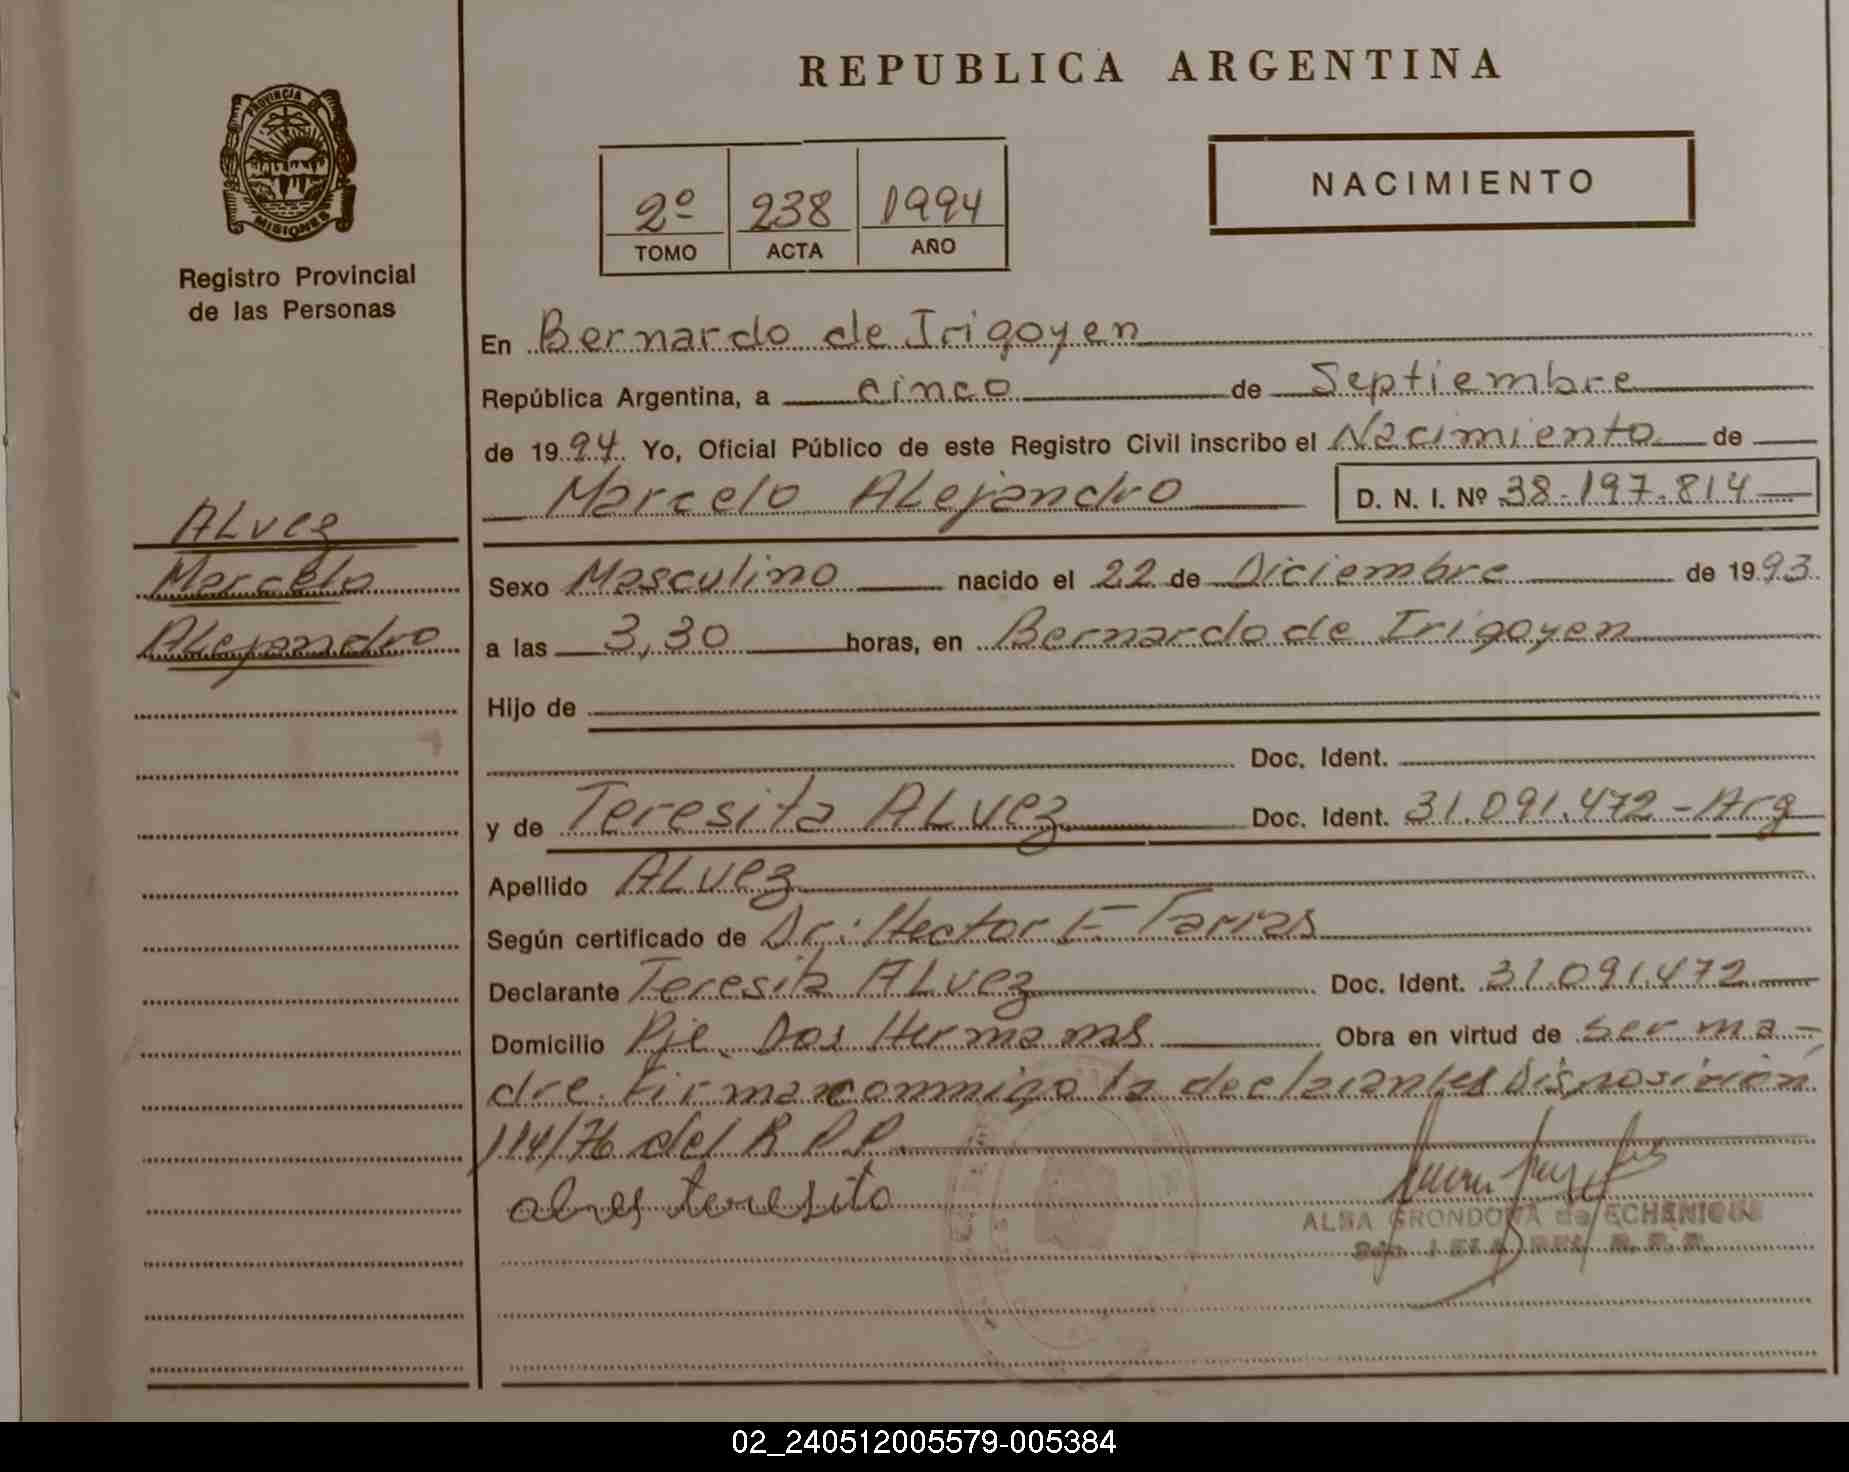 REPUBLICA ARGENTINA
PROVINCIA DE
MISIONES
Registro Provincial
de las Personas
2º 238 1994
TOMO ACTA AÑO
NACIMIENTO
ALvez
Marcelo
Alejandro
En Bernardo de Irigoyen
República Argentina, a cinco de Septiembre
de 1994 Yo, Oficial Público de este Registro Civil inscribo el Nacimiento de
Marcelo ALejandro D. N. I. Nº 38.197.814
Sexo Masculino nacido el 22 de Diciembre de 1993
a las 3,30 horas, en Bernardo de Irigoyen
Hijo de
Doc. Ident.
y de Teresita ALvez Doc. Ident. 31.091.472-Arg
Apellido ALvez
Según certificado de Dr: Hector E Tarras
Declarante Teresita ALvez Doc. Ident. 31.091.472
Domicilio Pje. Dos Hermanas Obra en virtud de ser ma-
dre. Firma conmigo la declarante Disposición
114/76 del R.P.P.
alves teresita
ALBA GRONDONA de ECHENIQUE
R. P. P.
02_240512005579-005384